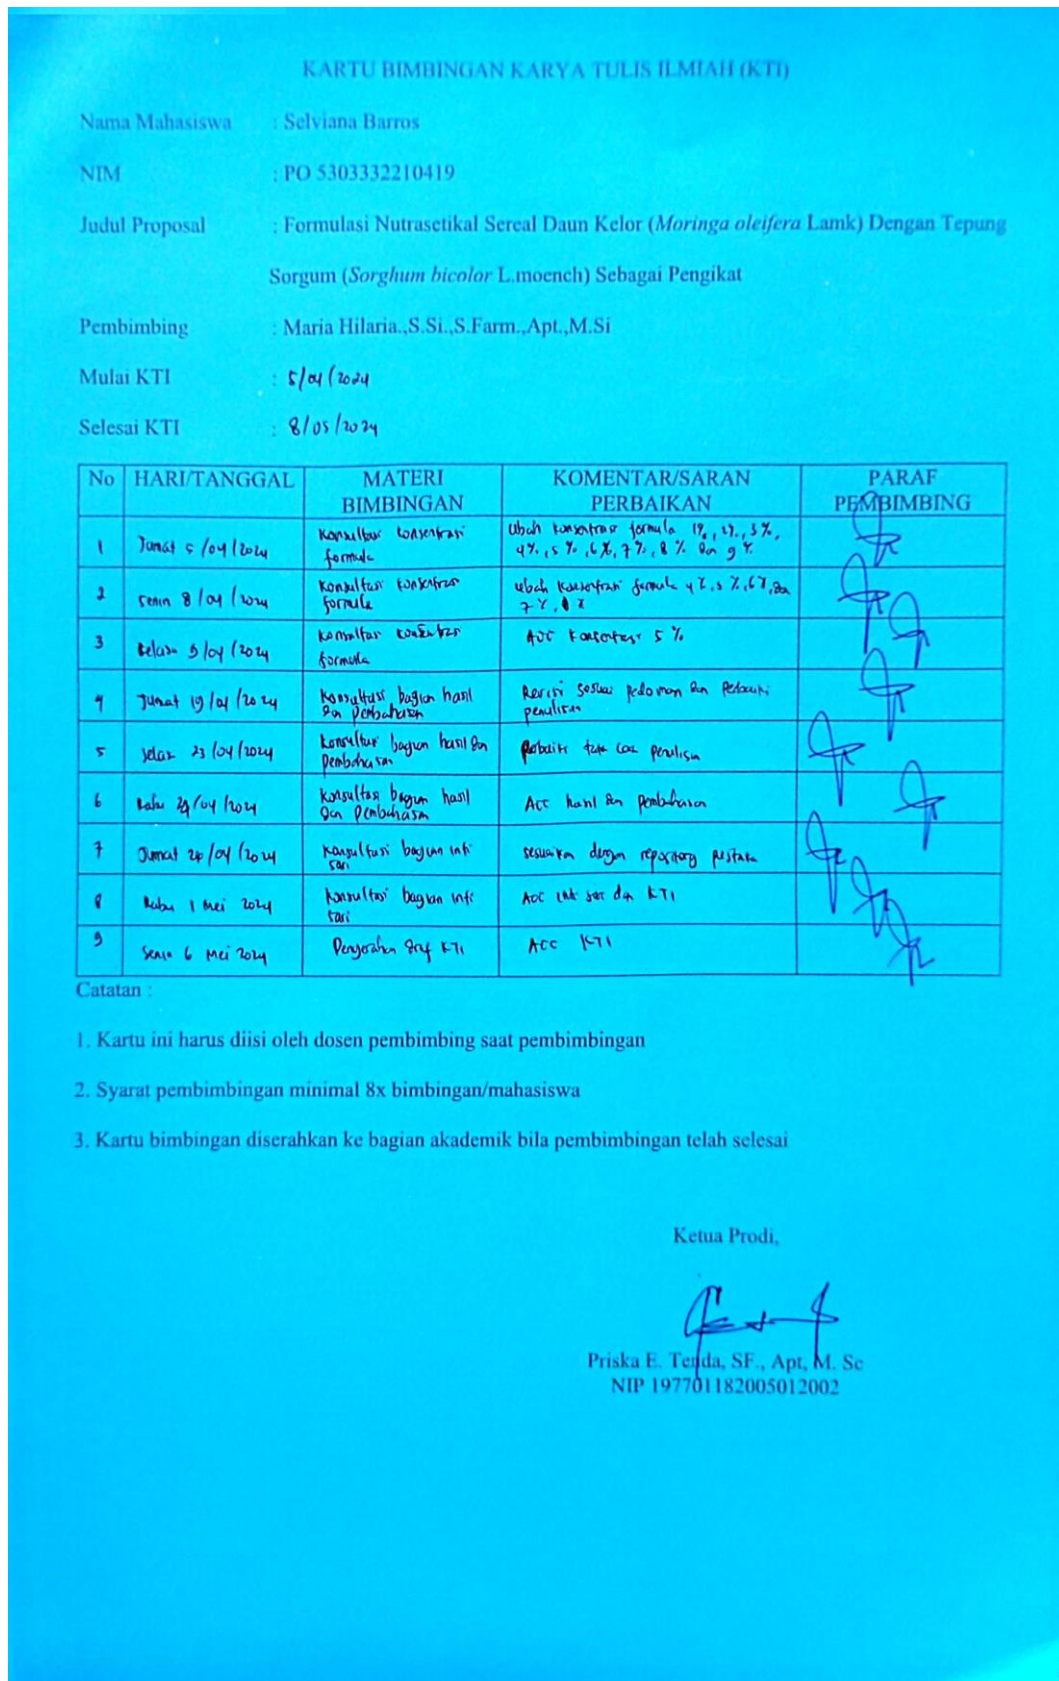 KARTU BIMBINGAN KARYA TULIS ILMIAH (KTI)
Nama Mahasiswa : Selviana Barros
NIM : PO 5303332210419
Judul Proposal : Formulasi Nutrasetikal Sereal Daun Kelor (Moringa oleifera Lamk) Dengan Tepung
Sorgum (Sorghum bicolor L.moench) Sebagai Pengikat
Pembimbing : Maria Hilaria.,S.Si.,S.Farm.,Apt.,M.Si
Mulai KTI : 5/04/2024
Selesai KTI : 8/05/2024
No HARI/TANGGAL MATERI BIMBINGAN KOMENTAR/SARAN PERBAIKAN PARAF PEMBIMBING
1 Jumat 5/04/2024 Konsultasi konsentrasi formula Ubah konsentrasi formula 1%, 2%, 3%,
4%, 5%, 6%, 7%, 8% dan 9%
2 Senin 8/04/2024 Konsultasi konsentrasi formula ubah konsentrasi formula 4%, 5%, 6%, dan
7%
3 Selasa 9/04/2024 Konsultasi konsentrasi formula ACC konsentrasi 5%
4 Jumat 19/04/2024 Konsultasi bagian hasil dan pembahasan Revisi sesuai pedoman dan perbaiki penulisan
5 Selasa 23/04/2024 Konsultasi bagian hasil dan pembahasan perbaiki tata cara penulisan
6 Rabu 24/04/2024 Konsultasi bagian hasil dan pembahasan ACC hasil dan pembahasan
7 Jumat /04/2024 Konsultasi bagian inti sari sesuaikan dengan repository pustaka
8 Rabu 1 Mei 2024 Konsultasi bagian inti sari ACC inti sari dan KTI
9 Senin 6 Mei 2024 Penyerahan draf KTI ACC KTI
Catatan :
1. Kartu ini harus diisi oleh dosen pembimbing saat pembimbingan
2. Syarat pembimbingan minimal 8x bimbingan/mahasiswa
3. Kartu bimbingan diserahkan ke bagian akademik bila pembimbingan telah selesai
Ketua Prodi,
Priska E. Tenda, SF., Apt, M. Sc
NIP 197701182005012002